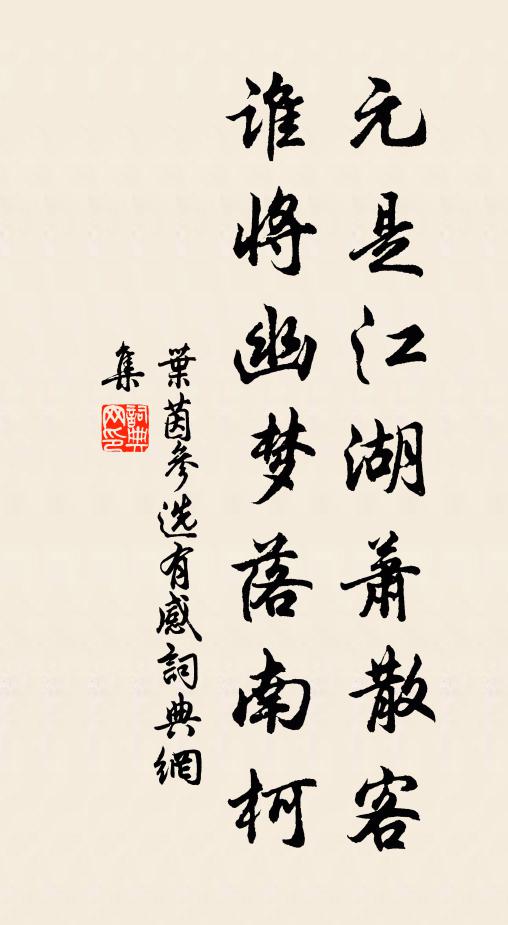 元是江湖萧散客
谁将幽梦落南柯
葉茵參选有感詞典網
集
詞典网印